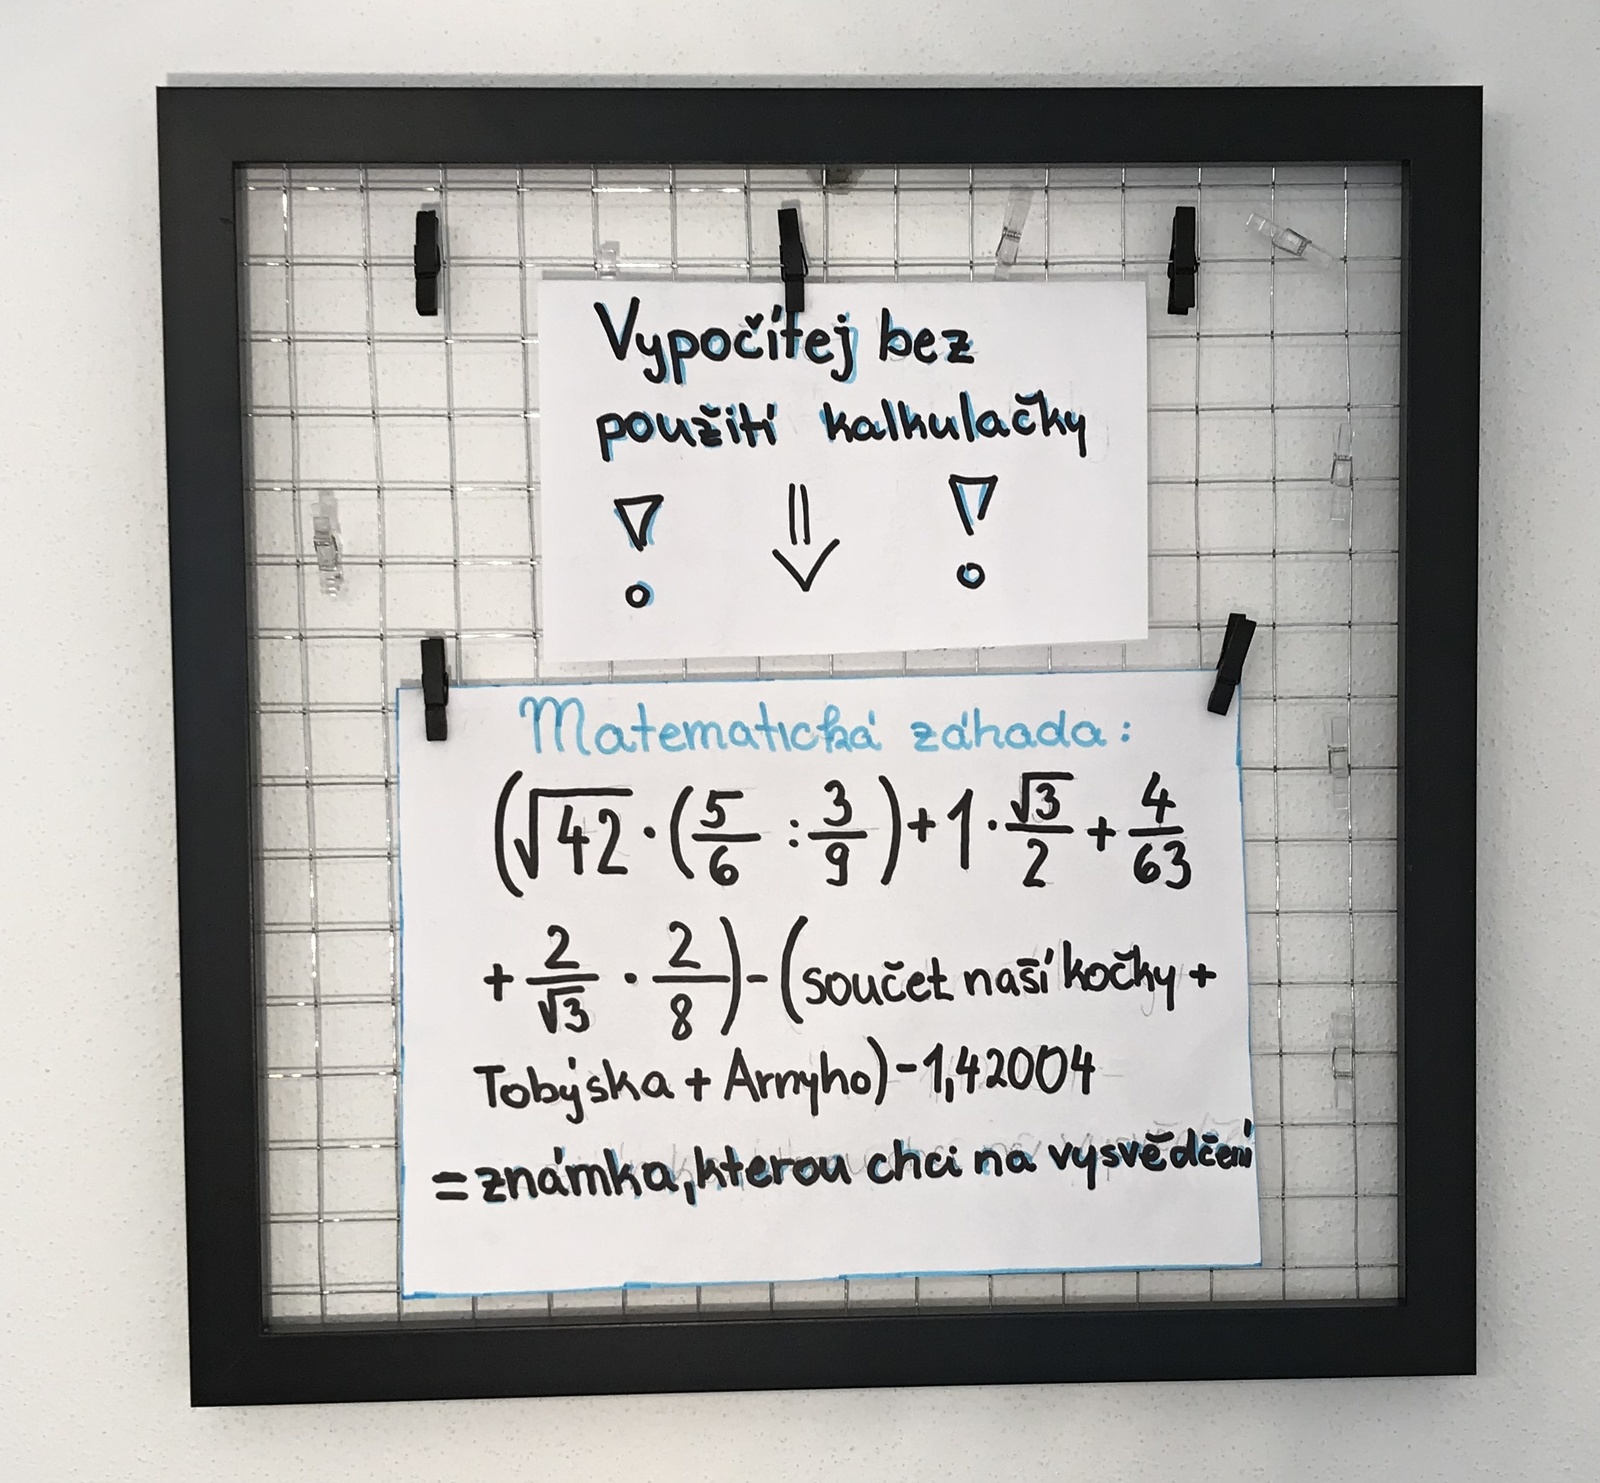 Vypočítej bez
použití kalkulačky
! ⇓ !
Matematická záhada:
(√42 · (5/6 : 3/9) + 1 · √3/2 + 4/63
+ 2/√3 · 2/8) - (součet naší kočky +
Tobýska + Arnyho) - 1,42004
= známka, kterou chci na vysvědčení